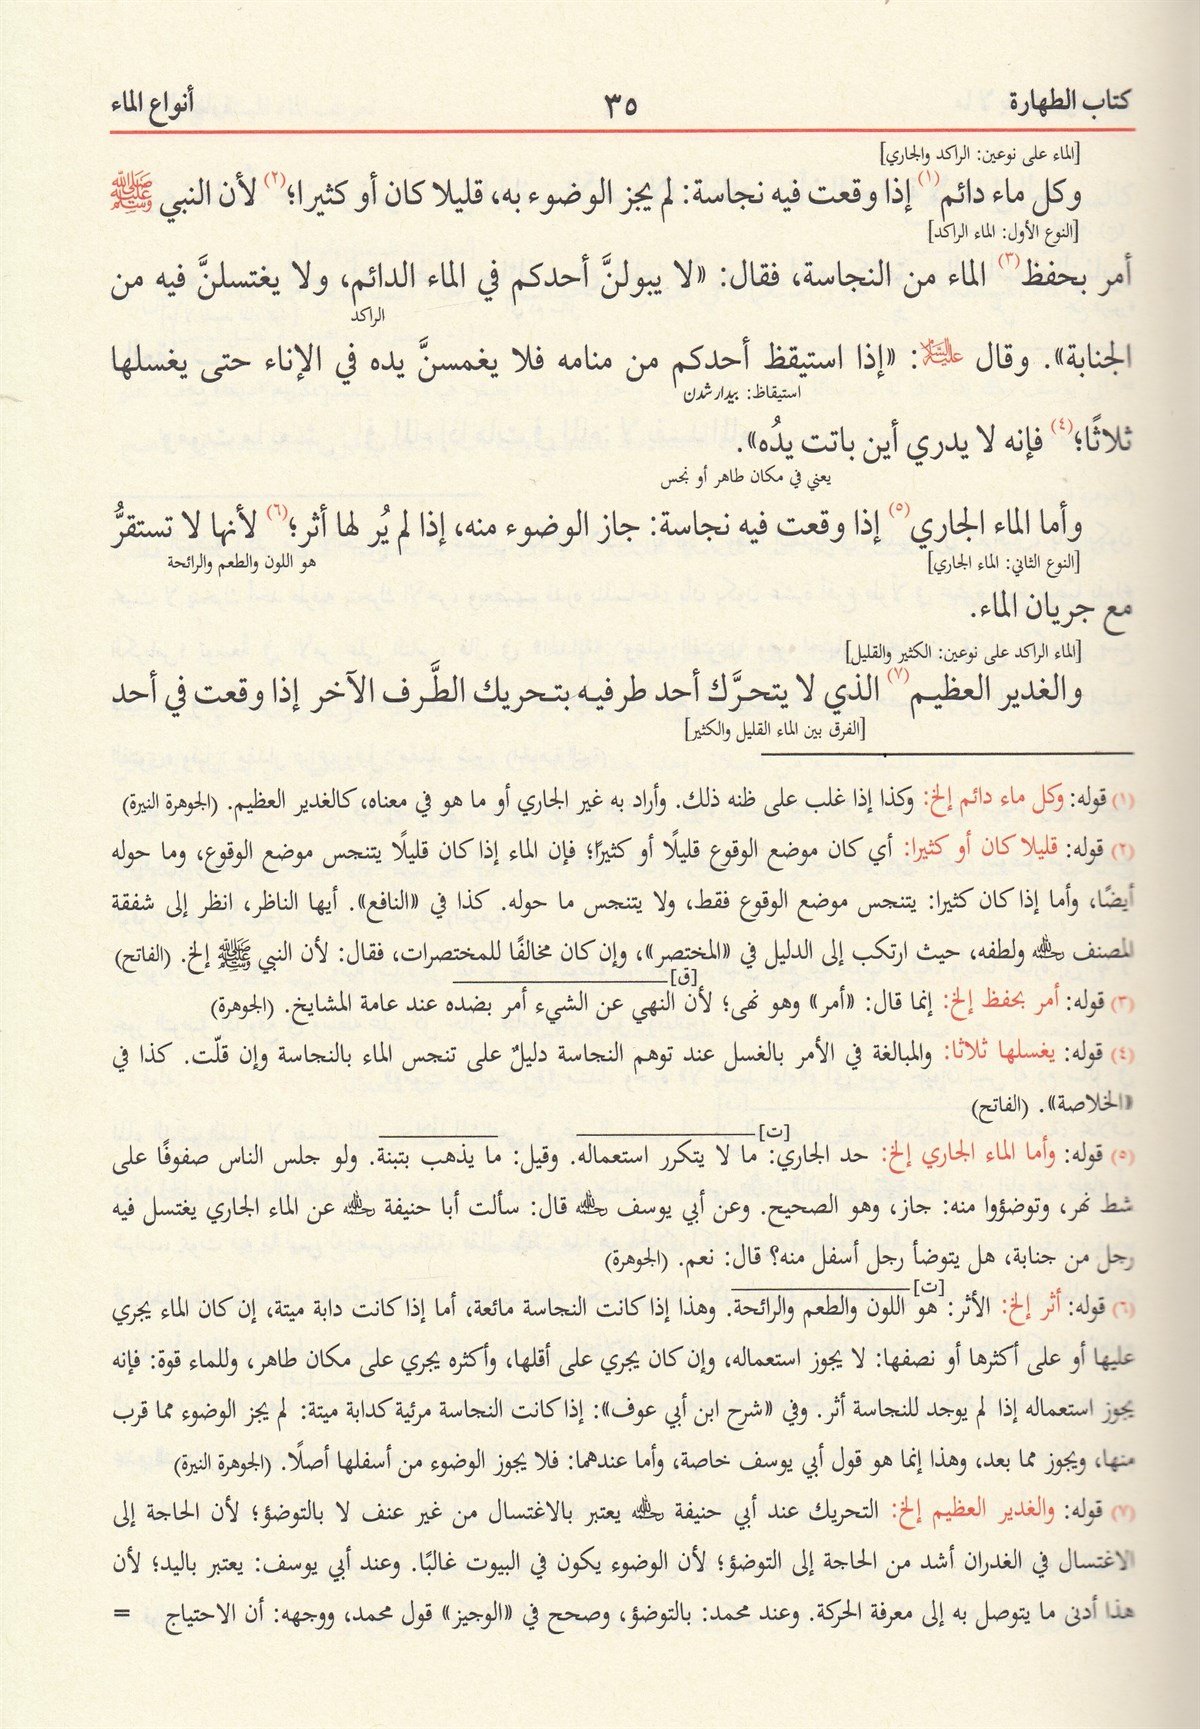 كتاب الطهارة ٣٥ أنواع الماء
[الماء على نوعين: الراكد والجاري]
وكل ماء دائم(١) إذا وقعت فيه نجاسة: لم يجز الوضوء به، قليلا كان أو كثيرا؛(٢) لأن النبي ﷺ
[النوع الأول: الماء الراكد]
أمر بحفظ(٣) الماء من النجاسة، فقال: «لا يبولنَّ أحدكم في الماء الدائم، ولا يغتسلنَّ فيه من
الراكد
الجنابة». وقال عليه السلام: «إذا استيقظ أحدكم من منامه فلا يغمسنَّ يده في الإناء حتى يغسلها
استيقاظ: بيدار شدن
ثلاثًا؛(٤) فإنه لا يدري أين باتت يدُه».
يعني في مكان طاهر أو نجس
وأما الماء الجاري(٥) إذا وقعت فيه نجاسة: جاز الوضوء منه، إذا لم يُر لها أثر؛(٦) لأنها لا تستقرُّ
[النوع الثاني: الماء الجاري] هو اللون والطعم والرائحة
مع جريان الماء.
[الماء الراكد على نوعين: الكثير والقليل]
والغدير العظيم(٧) الذي لا يتحرَّك أحد طرفيه بتحريك الطَّرف الآخر إذا وقعت في أحد
[الفرق بين الماء القليل والكثير]
(١) قوله: وكل ماء دائم إلخ: وكذا إذا غلب على ظنه ذلك. وأراد به غير الجاري أو ما هو في معناه، كالغدير العظيم. (الجوهرة النيرة)
(٢) قوله: قليلا كان أو كثيرا: أي كان موضع الوقوع قليلًا أو كثيرًا؛ فإن الماء إذا كان قليلًا يتنجس موضع الوقوع، وما حوله
أيضًا، وأما إذا كان كثيرا: يتنجس موضع الوقوع فقط، ولا يتنجس ما حوله. كذا في «النافع». أيها الناظر، انظر إلى شفقة
المصنف رحمه الله ولطفه، حيث ارتكب إلى الدليل في «المختصر»، وإن كان مخالفًا للمختصرات، فقال: لأن النبي ﷺ إلخ. (الفاتح)
[ق]
(٣) قوله: أمر بحفظ إلخ: إنما قال: «أمر» وهو نهى؛ لأن النهي عن الشيء أمر بضده عند عامة المشايخ. (الجوهرة)
(٤) قوله: يغسلها ثلاثا: والمبالغة في الأمر بالغسل عند توهم النجاسة دليلٌ على تنجس الماء بالنجاسة وإن قلّت. كذا في
«الخلاصة». (الفاتح)
[ت]
(٥) قوله: وأما الماء الجاري إلخ: حد الجاري: ما لا يتكرر استعماله. وقيل: ما يذهب بتبنة. ولو جلس الناس صفوفًا على
شط نهر، وتوضؤوا منه: جاز، وهو الصحيح. وعن أبي يوسف رحمه الله قال: سألت أبا حنيفة رحمه الله عن الماء الجاري يغتسل فيه
رجل من جنابة، هل يتوضأ رجل أسفل منه؟ قال: نعم. (الجوهرة)
[ت]
(٦) قوله: أثر إلخ: الأثر: هو اللون والطعم والرائحة. وهذا إذا كانت النجاسة مائعة، أما إذا كانت دابة ميتة، إن كان الماء يجري
عليها أو على أكثرها أو نصفها: لا يجوز استعماله، وإن كان يجري على أقلها، وأكثره يجري على مكان طاهر، وللماء قوة: فإنه
يجوز استعماله إذا لم يوجد للنجاسة أثر. وفي «شرح ابن أبي عوف»: إذا كانت النجاسة مرئية كدابة ميتة: لم يجز الوضوء مما قرب
منها، ويجوز مما بعد، وهذا إنما هو قول أبي يوسف خاصة، وأما عندهما: فلا يجوز الوضوء من أسفلها أصلًا. (الجوهرة النيرة)
(٧) قوله: والغدير العظيم إلخ: التحريك عند أبي حنيفة رحمه الله يعتبر بالاغتسال من غير عنف لا بالتوضؤ؛ لأن الحاجة إلى
الاغتسال في الغدران أشد من الحاجة إلى التوضؤ؛ لأن الوضوء يكون في البيوت غالبًا. وعند أبي يوسف: يعتبر باليد؛ لأن
هذا أدنى ما يتوصل به إلى معرفة الحركة. وعند محمد: بالتوضؤ، وصحح في «الوجيز» قول محمد، ووجهه: أن الاحتياج =